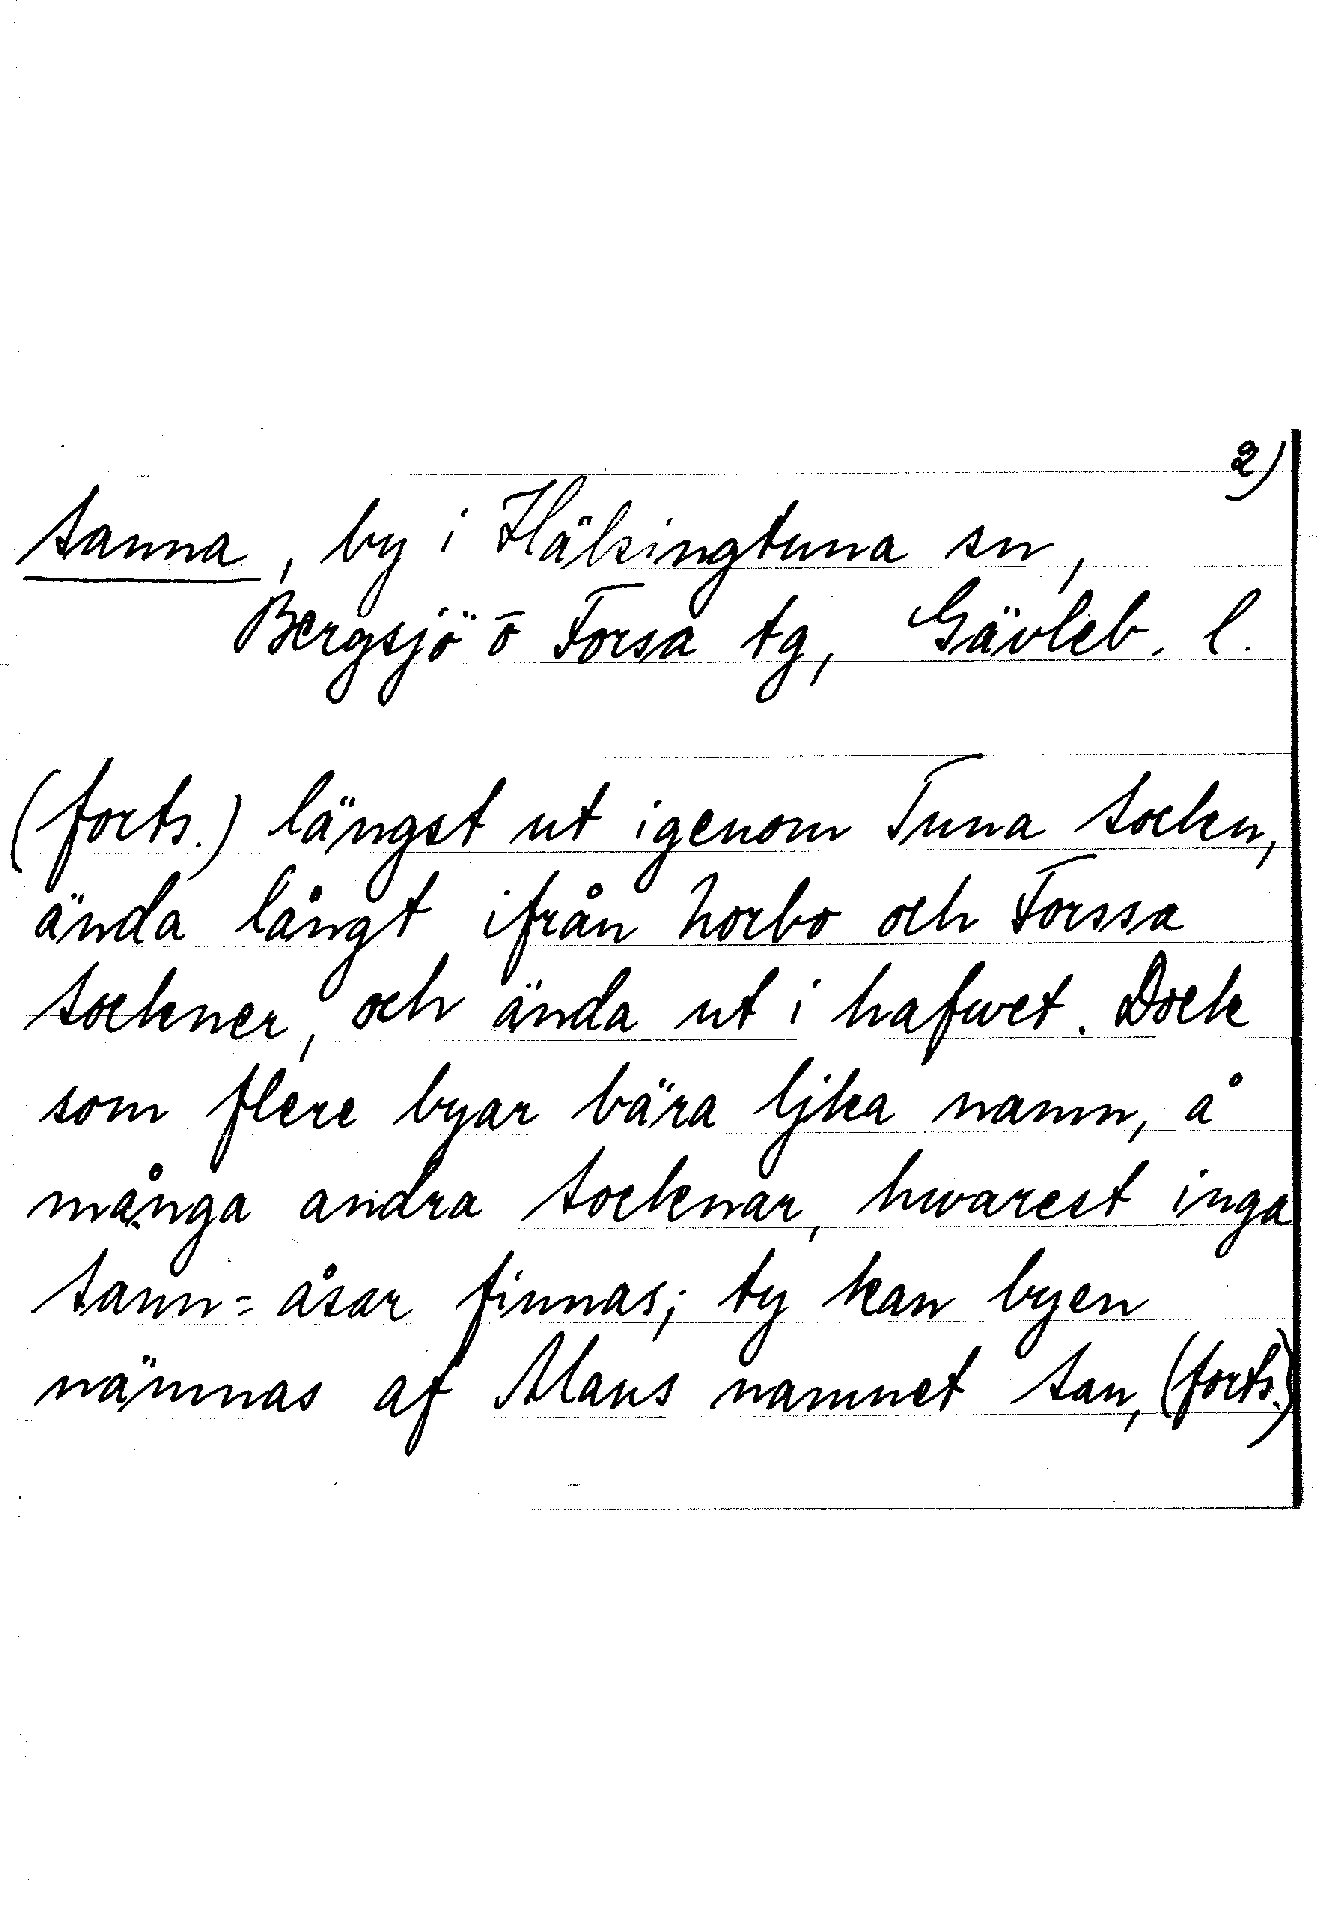 2)
Sanna, by i Hälsingtuna sn,
Bergsjö o Forsa tg, Gävleb. l.
(forts.) längst ut igenom Tuna Sockn,
ända långt ifrån Norbo och Forssa
Sockner, och ända ut i hafwet. Dock
som flere byar bära ljka namn, å
många andra Socknar, hwarest inga
Sann=åsar finnas; ty kan byen
nämnas af Mans namnet San, (forts.)